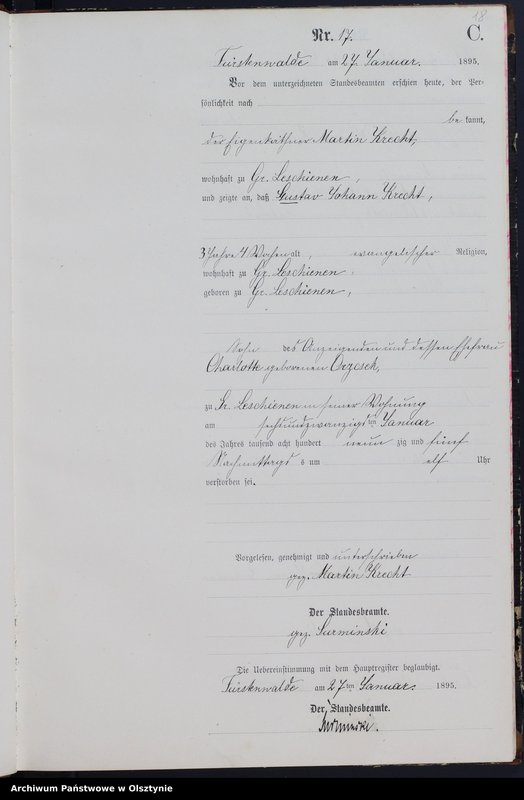 18
Nr. 17.
C.
Fürstenwalde am 27. Januar. 1895.
Vor dem unterzeichneten Standesbeamten erschien heute, der Per-
sönlichkeit nach
be kannt,
der Eigenkäthner Martin Krecht,
wohnhaft zu Gr. Leschienen,
und zeigte an, daß Gustav Johann Krecht,
3 Jahre 4 Wochen alt, evangelischer Religion,
wohnhaft zu Gr. Leschienen,
geboren zu Gr. Leschienen,
Sohn des Anzeigenden und dessen Ehefrau
Charlotte geborenen Orzesek,
zu Gr. Leschienen in seiner Wohnung
am sechsundzwanzigsten Januar
des Jahres tausend acht hundert neun zig und fünf
Nachmittags um elf Uhr
verstorben sei.
Vorgelesen, genehmigt und unterschrieben
gez. Martin Krecht
Der Standesbeamte.
gez. Surminski
Die Uebereinstimmung mit dem Hauptregister beglaubigt.
Fürstenwalde am 27ten Januar. 1895.
Der Standesbeamte.
Surminski.
Archiwum Państwowe w Olsztynie